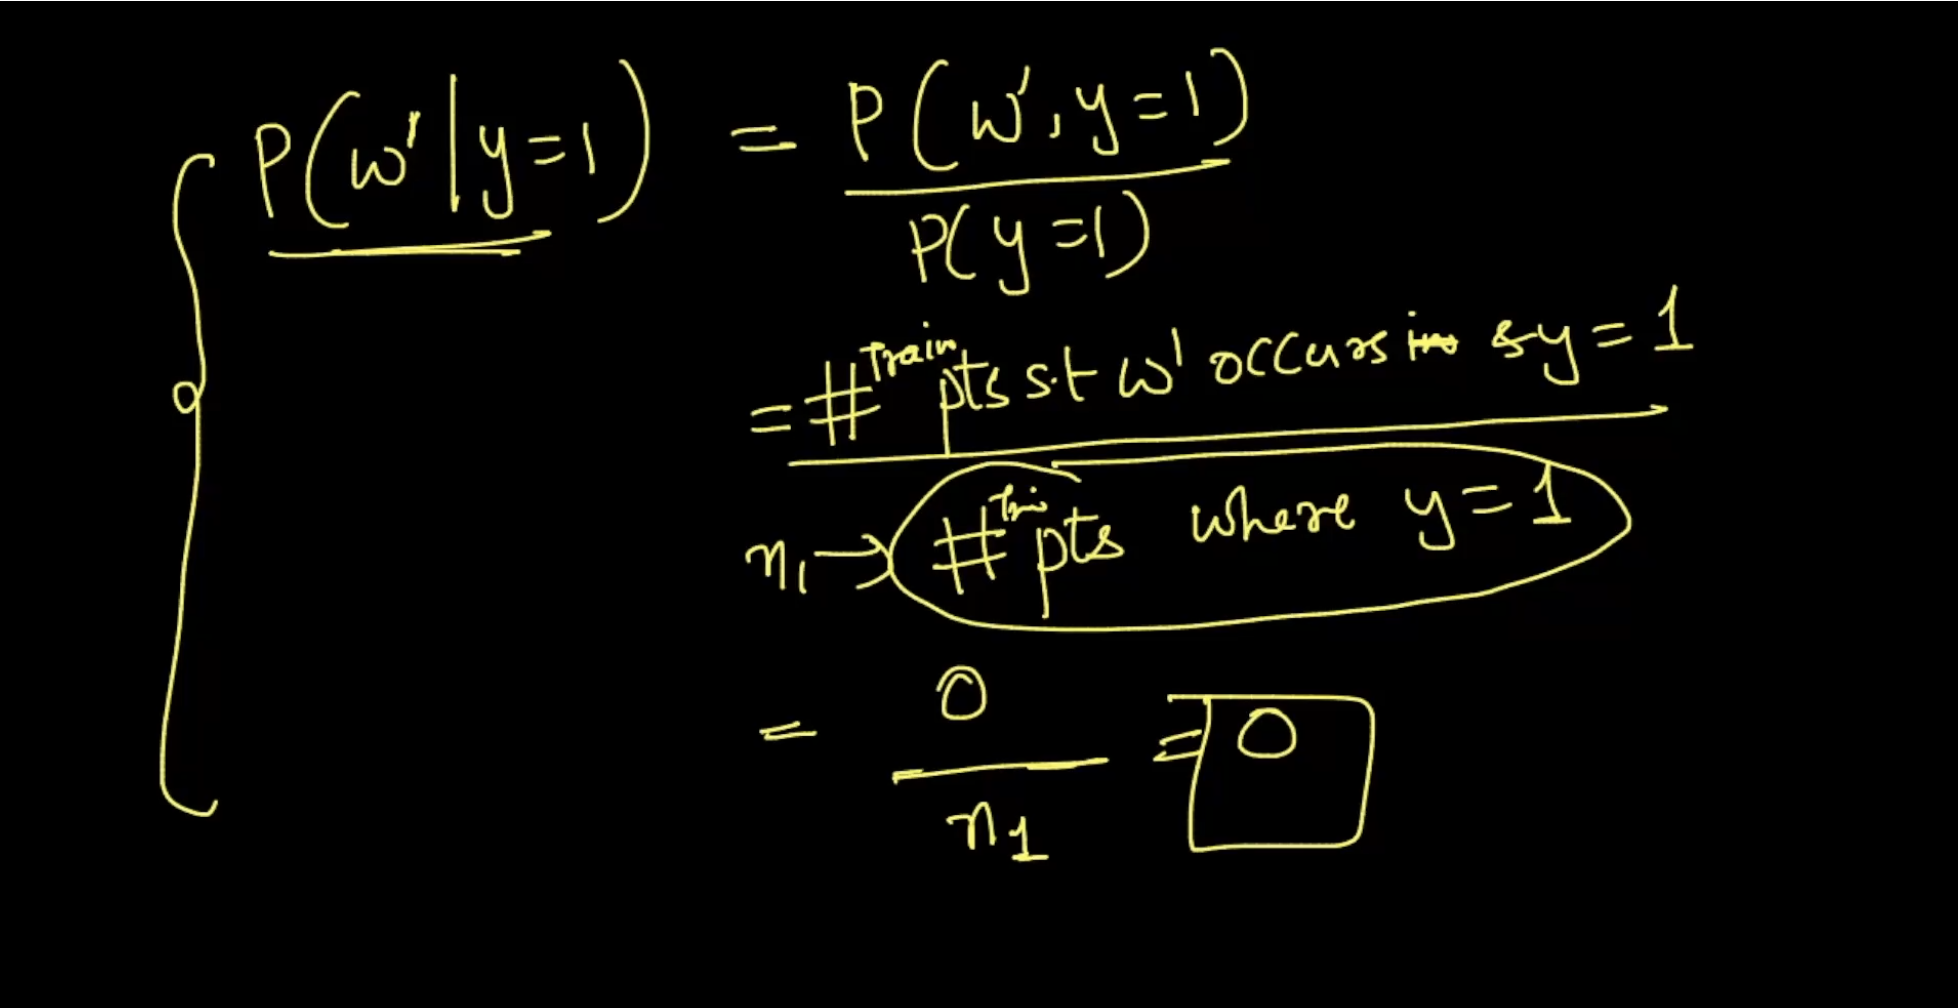 P(w'|y=1) = P(w', y=1)
P(y=1)
= # Train pts s.t w' occurs in & y = 1
n₁ → # pts where y = 1
= 0 = 0
n₁